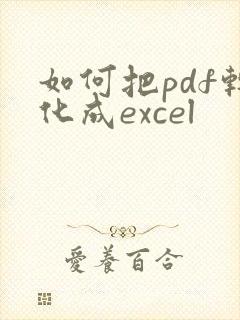 如何把pdf轉
化成excel
愛養百合